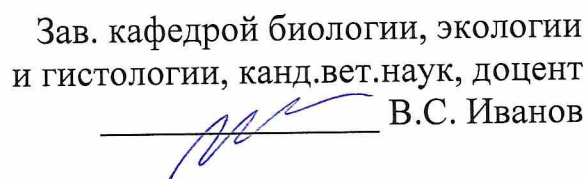 Зав. кафедрой биологии, экологии
и гистологии, канд.вет.наук, доцент
В.С. Иванов